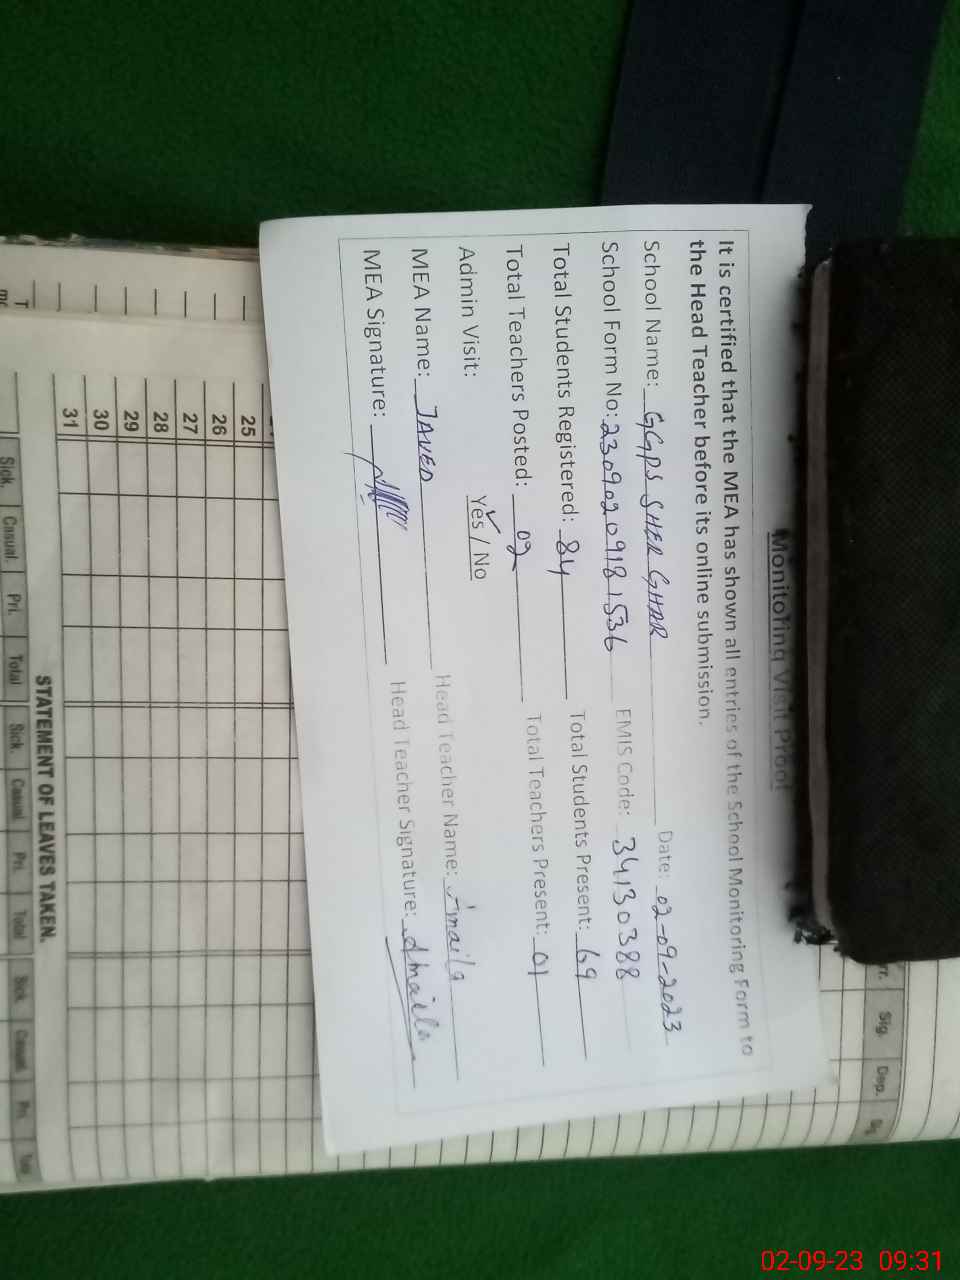 Monitoring Visit Proof
It is certified that the MEA has shown all entries of the School Monitoring Form to
the Head Teacher before its online submission.
School Name: GGPS SHER GHAR Date: 02-09-2023
School Form No: 23090209181536 EMIS Code: 34130388
Total Students Registered: 84 Total Students Present: 69
Total Teachers Posted: 02 Total Teachers Present: 01
Admin Visit: Yes / No
MEA Name: JAVED Head Teacher Name:
MEA Signature: Head Teacher Signature:
Sig. Dep. Sig
25
26
27
28
29
30
31
Sick. Casual. Pri. Total Sick. Casual Pri. Total Sick. Casual. Pri. Total
STATEMENT OF LEAVES TAKEN.
02-09-23 09:31